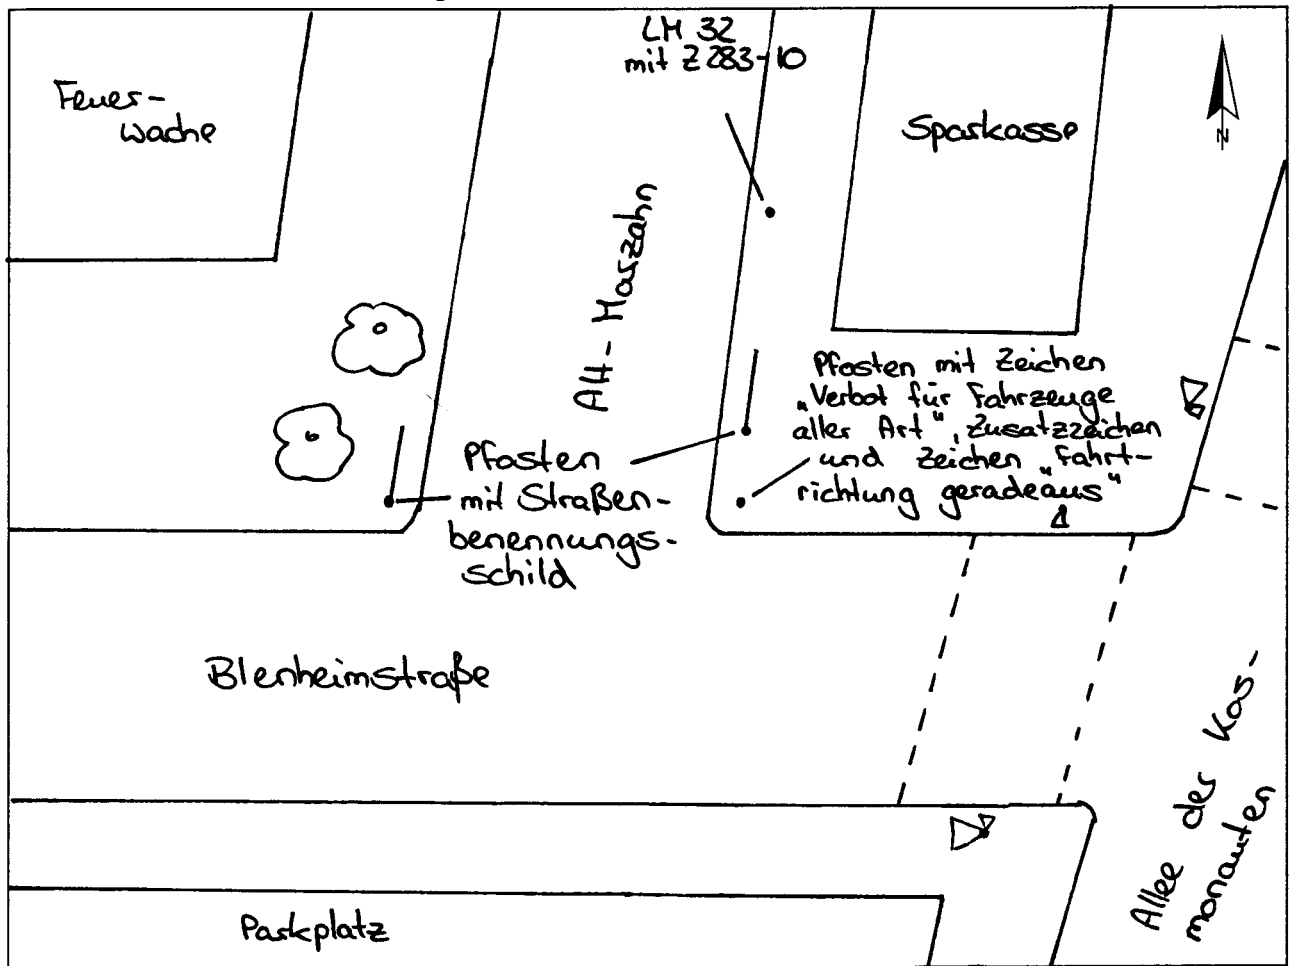 LM 32
mit Z 283-10
Feuer-
wache
Sparkasse
N
Alt-Marzahn
Pfosten mit Zeichen
„Verbot für Fahrzeuge
aller Art“, Zusatzzeichen
und Zeichen „Fahrt-
richtung geradeaus“
Pfosten
mit Straßen-
benennungs-
schild
Blenheimstraße
Allee der Kos-
monauten
Parkplatz